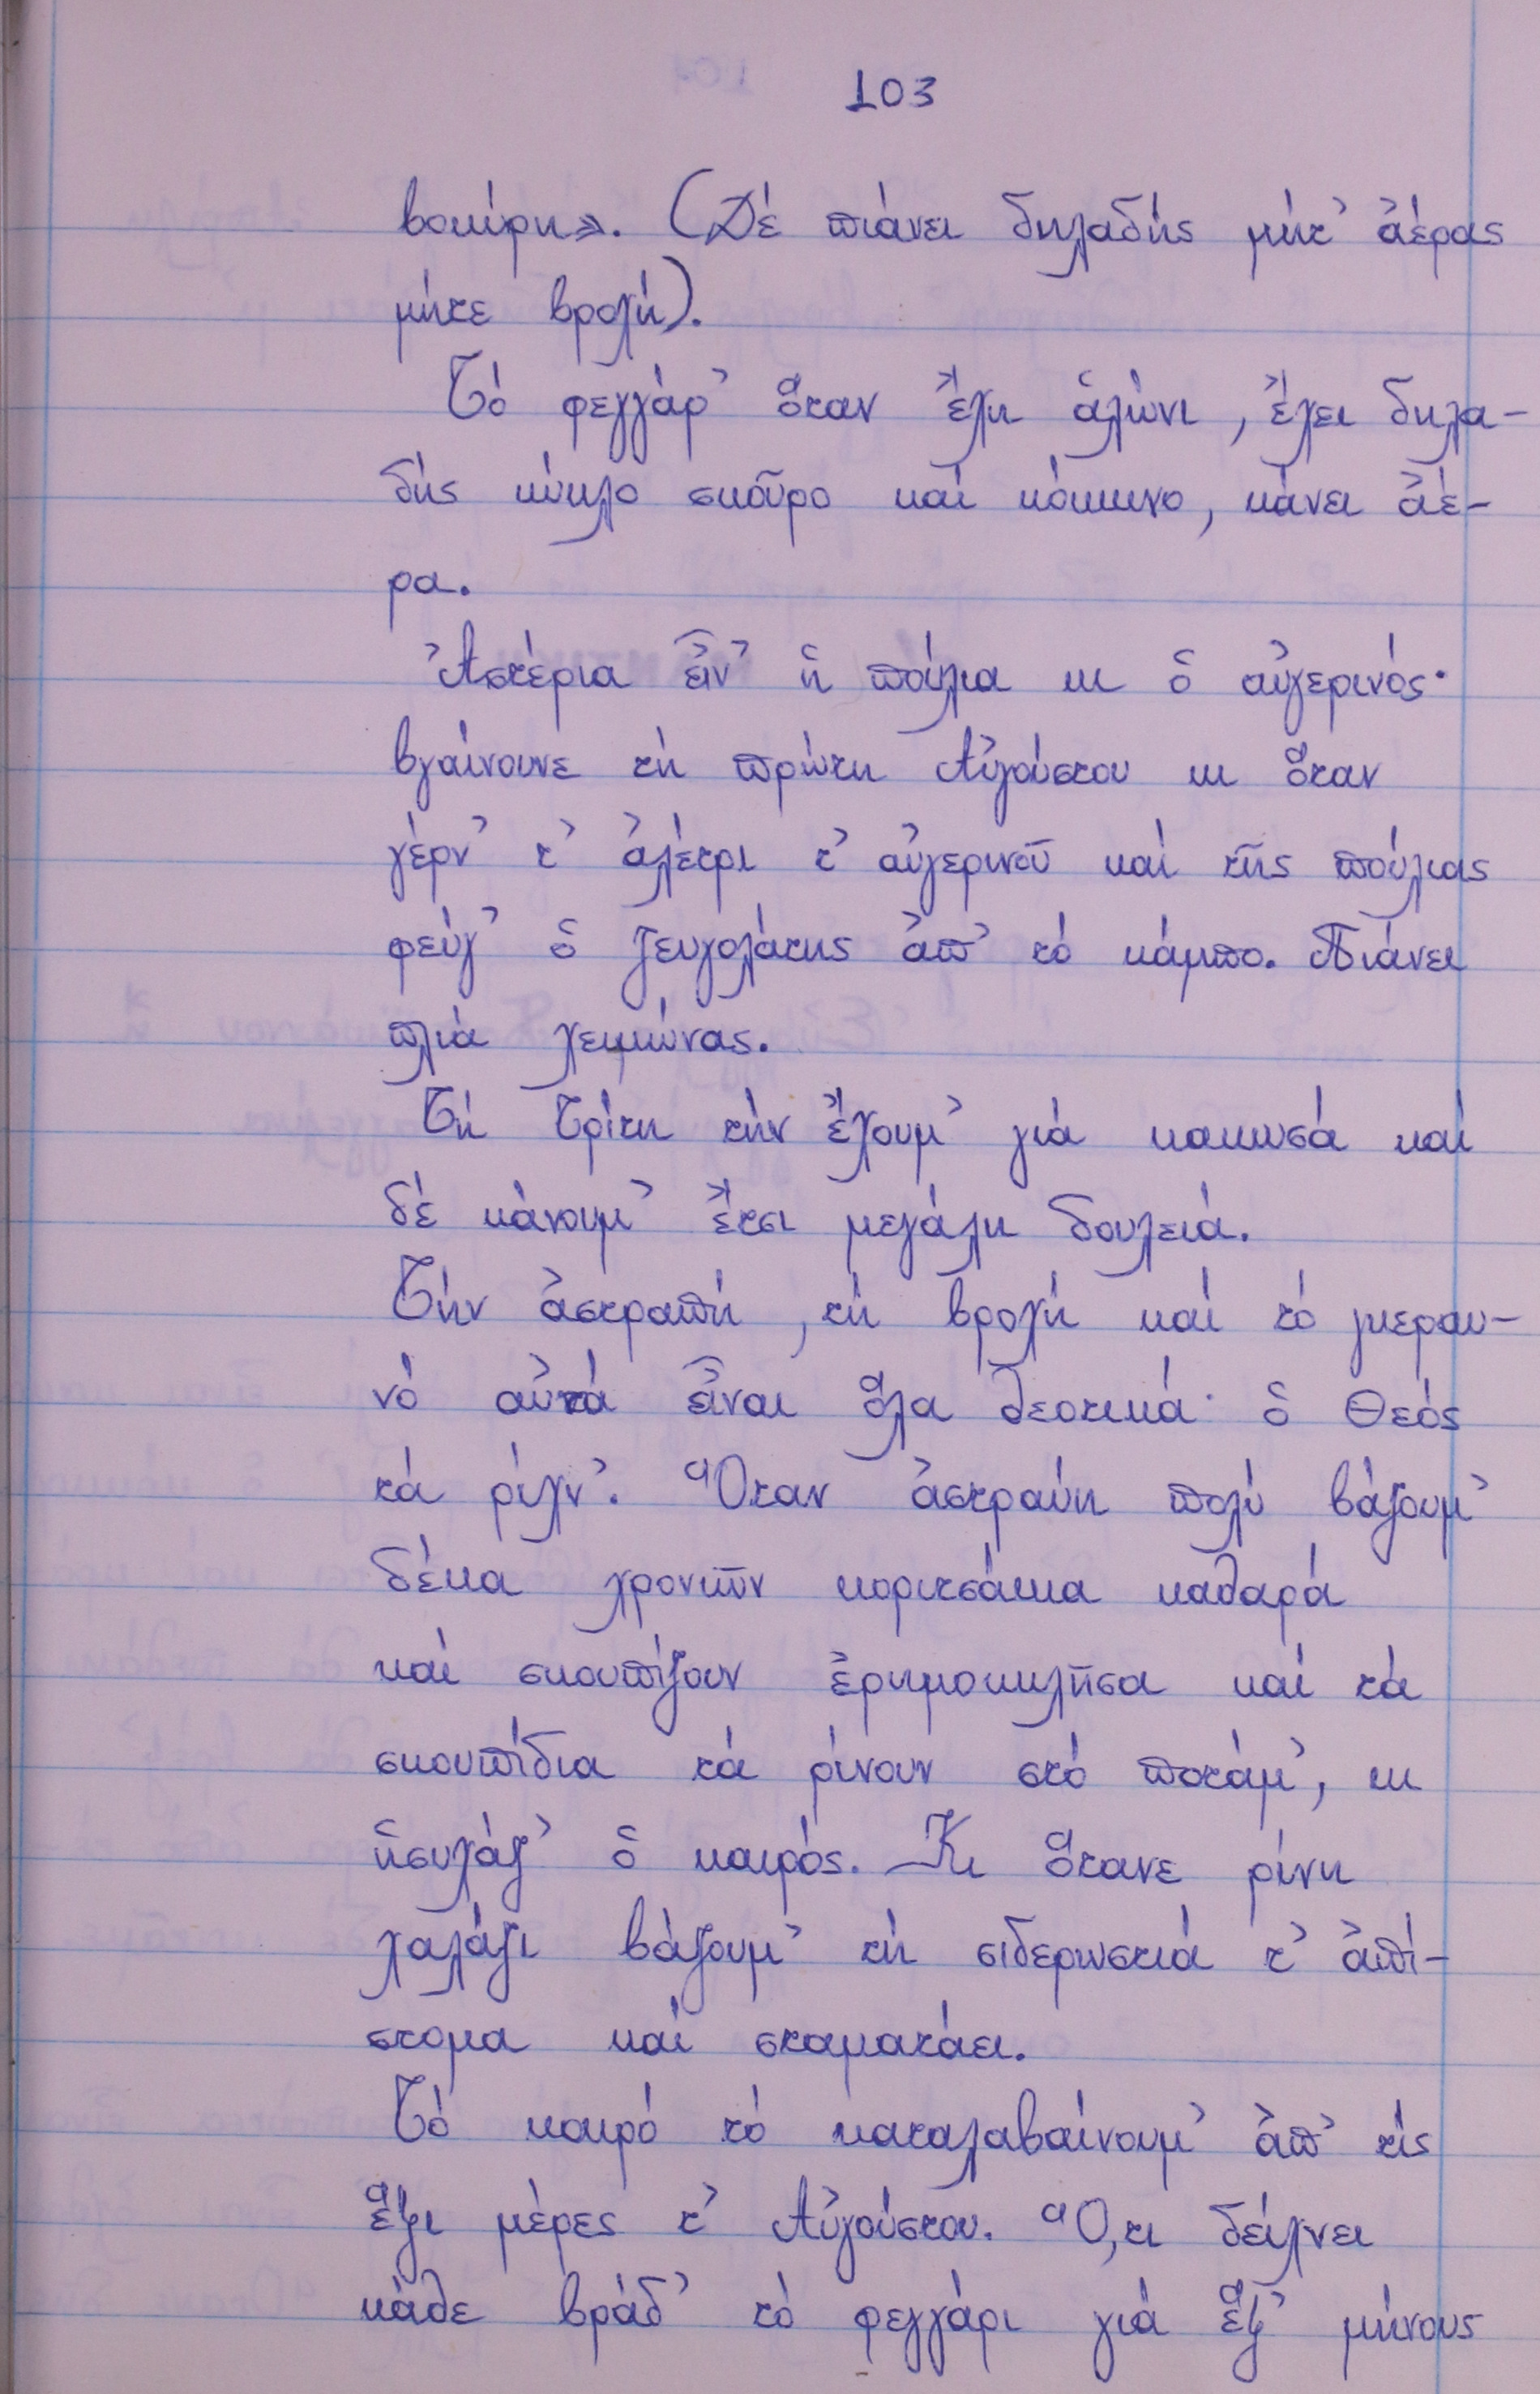 103
βοκύρη». (Δέ πιάνει δηλαδής μήτ' ἀέρας
μήτε βροχή).
Τό φεγγάρ' ὅταν ἔχη ἁλώνι, ἔχει δηλα-
δής κύκλο σκοῦρο καί κόκκινο, κάνει ἀέ-
ρα.
Ἀστέρια εἶν' ἡ πούλια κι ὁ αὐγερινός·
βγαίνουνε τή πρώτη Αὐγούστου κι ὅταν
γέρν' τ' ἀλέτρι τ' αὐγερινοῦ καί τῆς πούλιας
φεύγ' ὁ ζευγολάτης ἀπ' τό κάμπο. Πιάνει
πλιά χειμώνας.
Τή Τρίτη τήν ἔχουμ' γιά κακιωσά καί
δέ κάνουμ' ἔτσι μεγάλη δουλειά.
Τήν ἀστραπή, τή βροχή καί τό γκεραυ-
νό αὐτά εἶναι ὅλα θεοτικά· ὁ Θεός
τά ρίχν'. Ὅταν ἀστραύη πολύ βάζουμ'
δέκα χρονιῶν κοριτσάκια καθαρά
καί σκουπίζουν ἐρημοκλῆσα καί τά
σκουπίδια τά ρίνουν στό ποτάμ', κι
ἡσυχάζ' ὁ καιρός. Κι ὅτανε ρίνη
χαλάζι βάζουμ' τή σιδερωστιά τ' ἀπί-
στομα καί σταματάει.
Τό καιρό τό καταλαβαίνουμ' ἀπ' τίς
ἕξι μέρες τ' Αὐγούστου. Ὅ,τι δείχνει
κάθε βράδ' τό φεγγάρι γιά ἕξ' μήνους